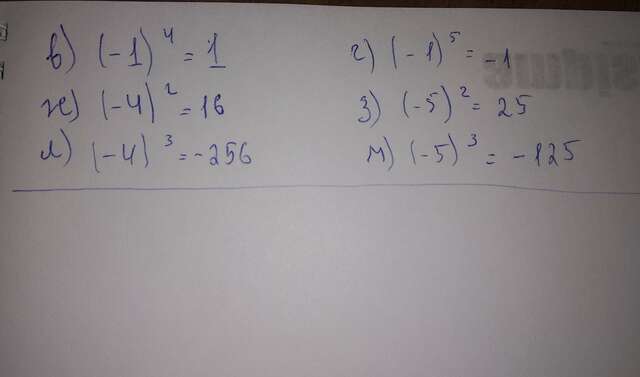 в) (-1)⁴ = 1 г) (-1)⁵ = -1
ж) (-4)² = 16 з) (-5)² = 25
л) (-4)³ = -256 м) (-5)³ = -125